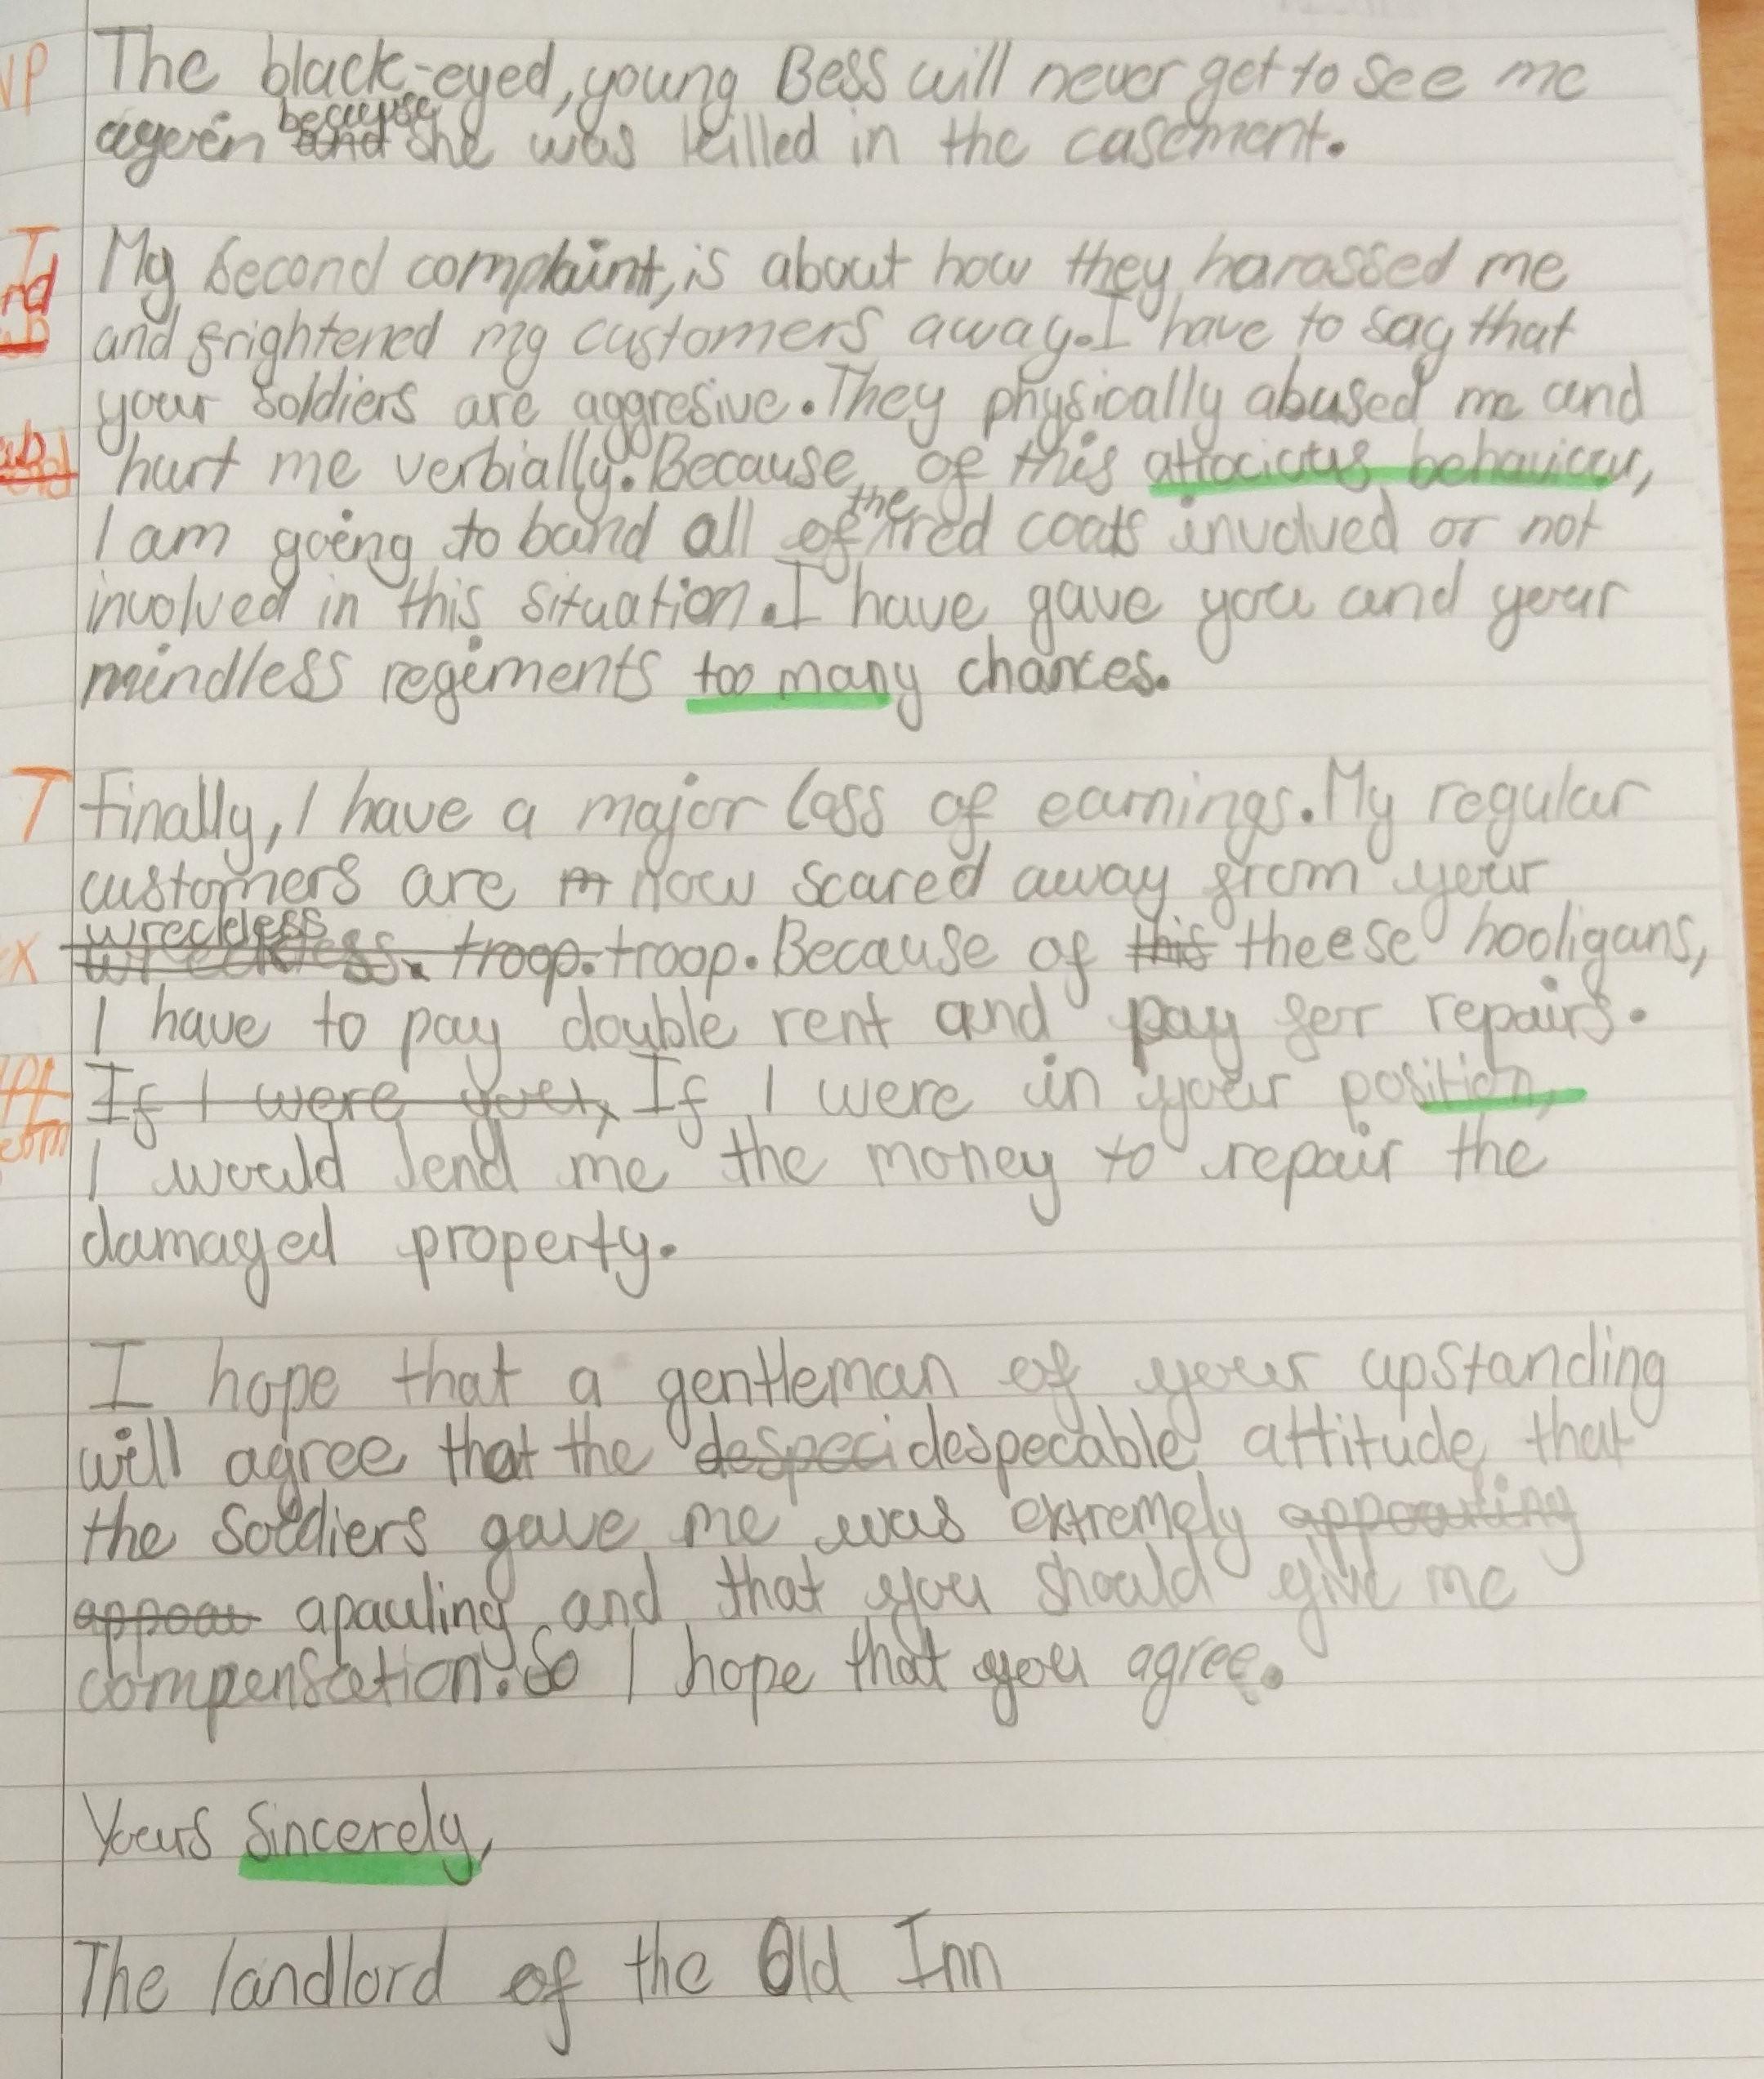 VP The black-eyed, young Bess will never get to see me
because
ageèn and she was killed in the casement.
T My second complaint, is about how they harassed me
and frightened my customers away. I have to say that
your soldiers are aggresive. They physically abused me and
hurt me verbially. Because of this atrocious behaviour,
the
I am going to band all of red coats involved or not
involved in this situation. I have gave you and your
mindless regiments too many chances.
T finally, I have a major loss of earnings. My regular
customers are m now scared away from your
wreckless
wreckless. troop. troop. Because of this theese hooligans,
I have to pay double rent and pay for repairs.
If I were you, If I were in your position,
I would lend me the money to repair the
damaged property.
I hope that a gentleman of your upstanding
will agree that the despeci despecable attitude that
the soldiers gave me was extremely
apauling and that you should give me
compensation. So I hope that you agree.
Yours Sincerely,
The landlord of the Old Inn